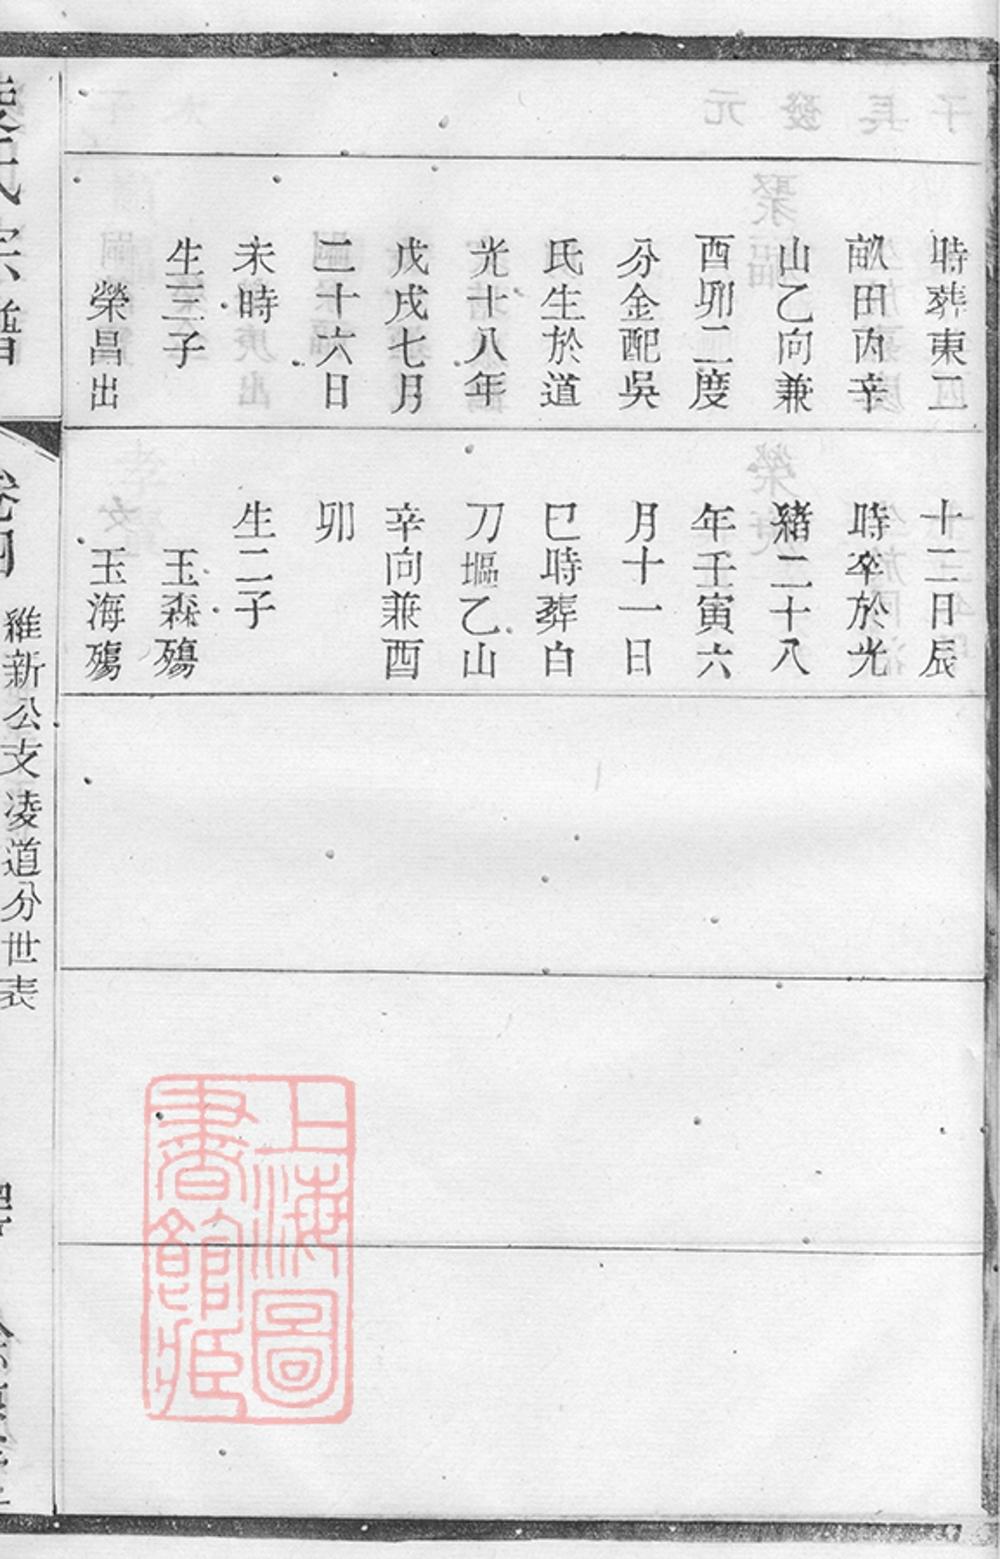 時葬東二
畝田丙辛
山乙向兼
酉卯二度
分金配吳
氏生於道
光十八年
戊戌七月
二十六日
未時
生三子
榮昌出
十二日辰
時卒於光
緒二十八
年壬寅六
月十一日
巳時葬白
刀塸乙山
辛向兼酉
卯
生二子
玉森殤
玉海殤
氏宗譜
卷四
維新公支凌道分世表
上海圖
書館藏